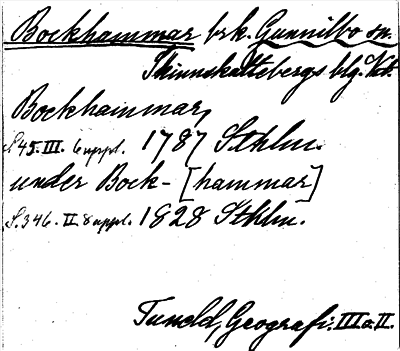 Bockhammar brk. Gunnilbo sn.
Skinnskattebergs blg. Vstl.
Bockhammar,
S. 45. III. 6 uppl. 1787 Sthlm.
under Bock- [hammar]
S. 346. II. 8 uppl. 1828 Sthlm.
Tuneld, Geografi. III o. II.